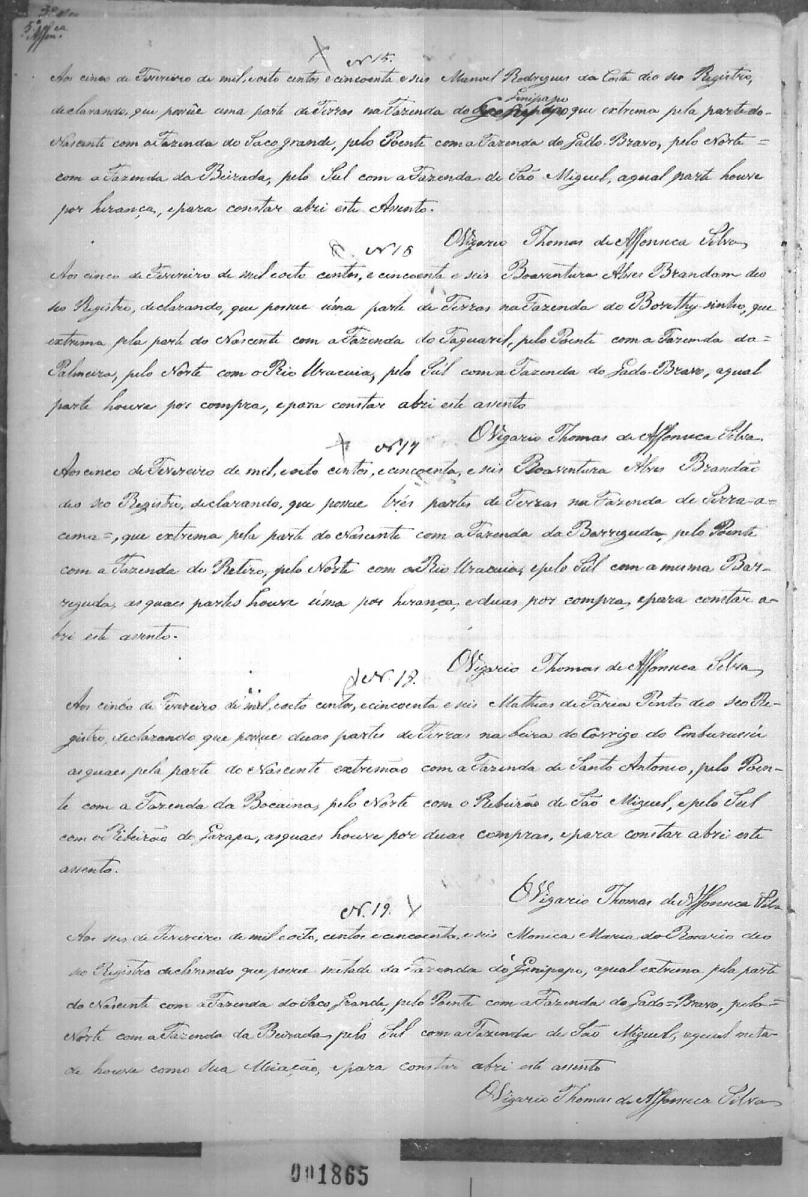 N 15.
Aos cinco de Fevereiro de mil, e oito centos e cincoenta e seis Manoel Rodrigues da Costa deo seo Registro,
declarando, que possûe uma parte de Terras na Fazenda do Genipapo que extrema pela parte do
Nascente com a Fazenda do Saco grande, pelo Poente com a Fazenda do Gado Bravo, pelo Norte =
com a Fazenda da Beirada, pelo Sul com a Fazenda de São Miguel, a qual parte houve
por herança, e para constar abri este Assento.
O Vigario Thomas de Affonseca Silva
N 16
Aos cinco de Fevereiro de mil e oito centos, e cincoenta e seis Boaventura Alves Brandam deo
seo Registro, declarando, que possue úma parte de Terras na Fazenda do Borithysinho, que
extrema pela parte do Nascente com a Fazenda do Taquaril, pelo Poente com a Fazenda da =
Palmeira, pelo Norte com o Rio Uracuia, pelo Sul com a Fazenda do Gado-Bravo, a qual
parte houve por compra, e para constar abri este assento
O Vigario Thomas de Affonseca Silva
N 17
Aos cinco de Fevereiro de mil, e oito centos, e cincoenta, e seis Boaventura Alves Brandão
deo seo Registro, declarando, que possue três partes de Terras na Fazenda de Serra-a-
cima =, que extrema pela parte do Nascente com a Fazenda da Barriguda, pelo Poente
com a Fazenda do Retiro, pelo Norte com o Rio Uracuia, e pelo Sul com a mesma Bar-
riguda, as quaes partes houve úma por herança, e duas por compra, e para constar a-
bri este assento.
O Vigario Thomas de Affonseca Silva
N. 18.
Aos cinco de Fevereiro de mil, e oito centos, e cincoenta e seis Mathias de Faria Pinto deo seo Re-
gistro, declarando que possue duas partes de Terras na beira do Corrigo do
as quaes pela parte do Nascente extremão com a Fazenda de Santo Antonio, pelo Poen-
te com a Fazenda da Bocaina, pelo Norte com o Ribeirão de São Miguel, e pelo Sul
com o Ribeirão do Garapa, as quaes houve por duas compras, e para constar abri este
assento.
O Vigario Thomas de Affonseca Silva
N. 19.
Aos seis de Fevereiro de mil e oito, centos e cincoenta, e seis Monica Maria do Rosario deo
seo Registro declarando que possue metade da Fazenda do Genipapo, a qual extrema pela parte
do Nascente com a Fazenda do Saco Grande, pelo Poente com a Fazenda do Gado = Bravo, pelo =
Norte com a Fazenda da Beirada, pelo Sul com a Fazenda de São Miguel, a qual meta-
de houve como sua Meiação, e para constar abri este assento
O Vigario Thomas de Affonseca Silva
001865